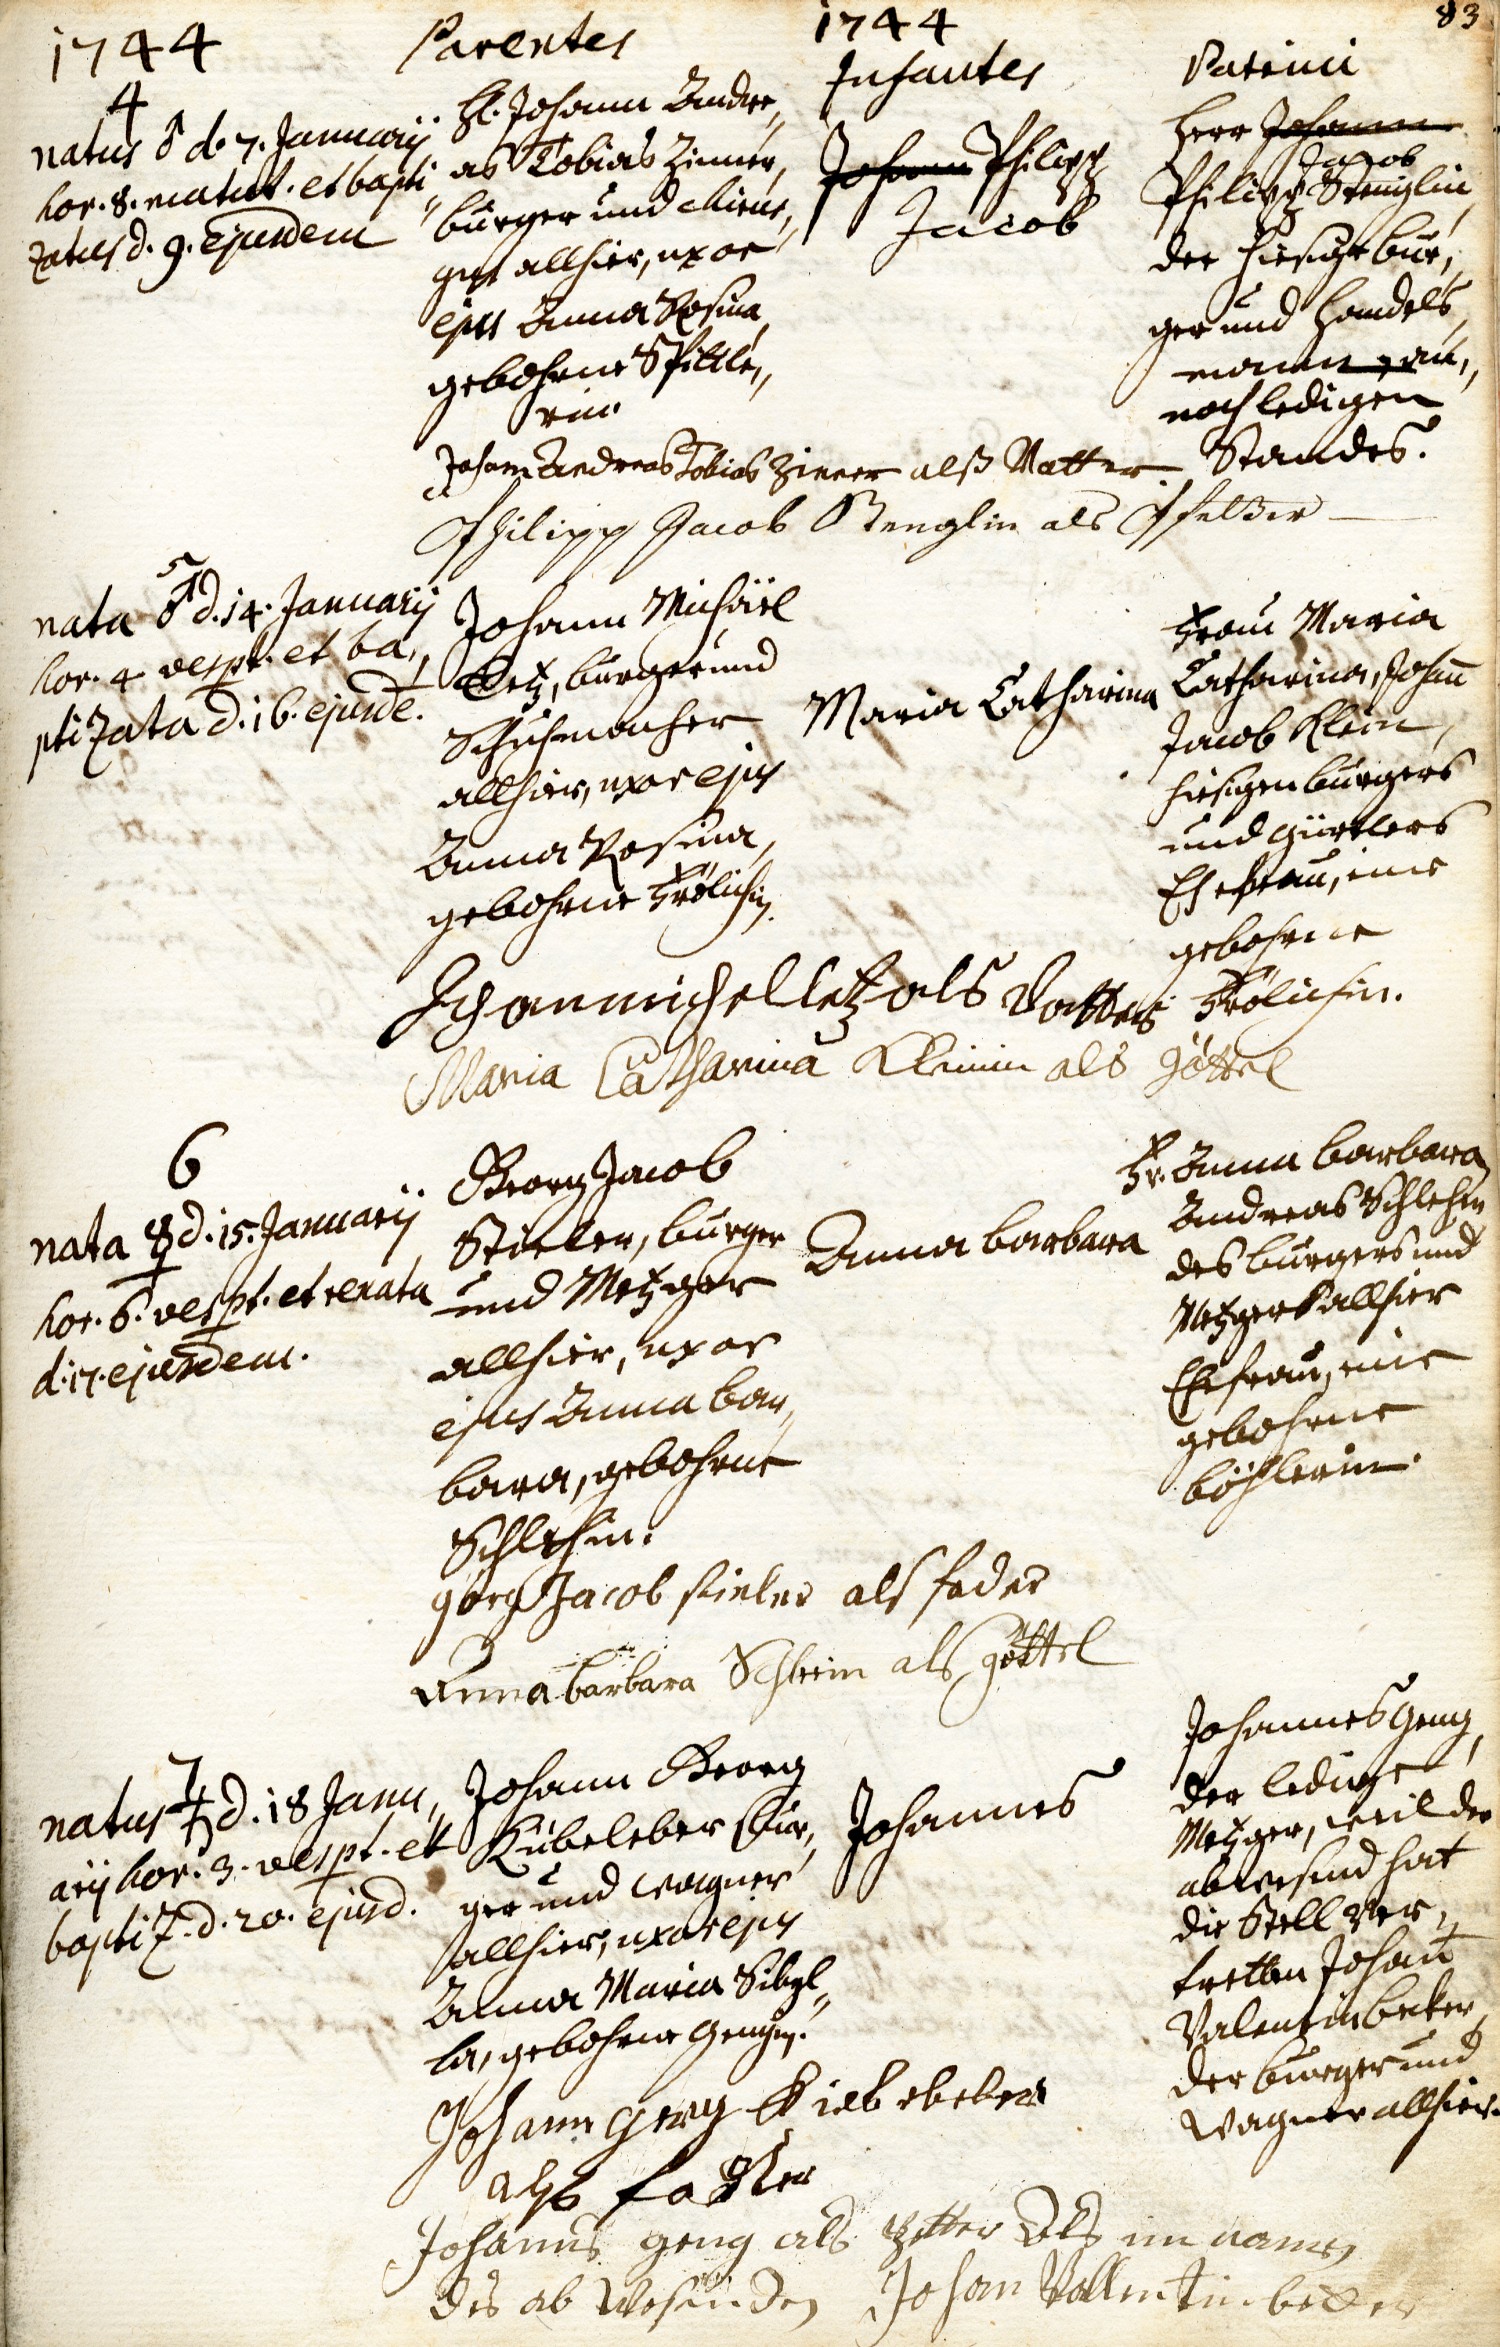 83
1744
Parentes
1744
Infantes
Patrini
4
natus ♂ d. 7. Januarij
hor. 8. matut. et bapti,,
zatus d. 9. Ejusdem
H. Johann Andre,,
as Tobias Zinner,
burger und
allhier, uxor
ejus Anna Rosina
gebohrne Spittle,,
rin.
Johann Philipp
Jacob
Herr Johann
Jacob
Philipp Stenglin
der hiesige bur,,
ger und Handels,,
mann, an,,
noch ledigen
Standes.
Johann Andreas Tobias Zinner alß Vatter
Philipp Jacob Stenglin als Pfetter
5
nata ♂ d. 14. Januarij
hor. 4 vespt. et ba,,
ptizata d. 16. ejusde.
Johann Michäel
Letz, burger und
Schuhmacher
allhier, uxor ejus
Anna Rosina,
gebohrne Frölichin.
Maria Catharina
Frau Maria
Catharina, Johann
Jacob Klein,
hiesigen burgers
und gürtlers
Ehefrau, eine
gebohrne
Frölichin.
Johan michel letz als Vatter
Maria Catharina Kleinin als göttel
6
nata ☿ d. 15. Januarij
hor. 6. vespt. et renata
d. 17. ejusdem.
Georg Jacob
Stieler, burger
und Metzger
allhier, uxor
ejus Anna bar,,
bara, gebohrne
Schlehin.
Anna barbara
Fr. Anna barbara
Andreas Schlehen
des burgers und
Metzgers allhier
Ehefrau, eine
gebohrne
böhlerin.
görg Jacob stieler als fader
Anna barbara Schlein als göttel
7
natus ♄ d. 18 Janu,,
arij hor. 3. vespt. et
baptiz. d. 20. ejusd.
Johann Georg
Kübeleber bur,,
ger und wagner
allhier, uxor ejus
Anna Maria Sibyl,,
la, gebohrne Gengin.
Johannes
Johannes Geng,
der ledige
Metzger, weil der
abwesend hat
die Stell ver,,
tretten Johann
Valentin becker,
der burger und
wagner allhier.
Johann gerg Kieb
alß fatter
Johannes geng als petter Als im namen
des ab Wesenden Johan Vallentin becker